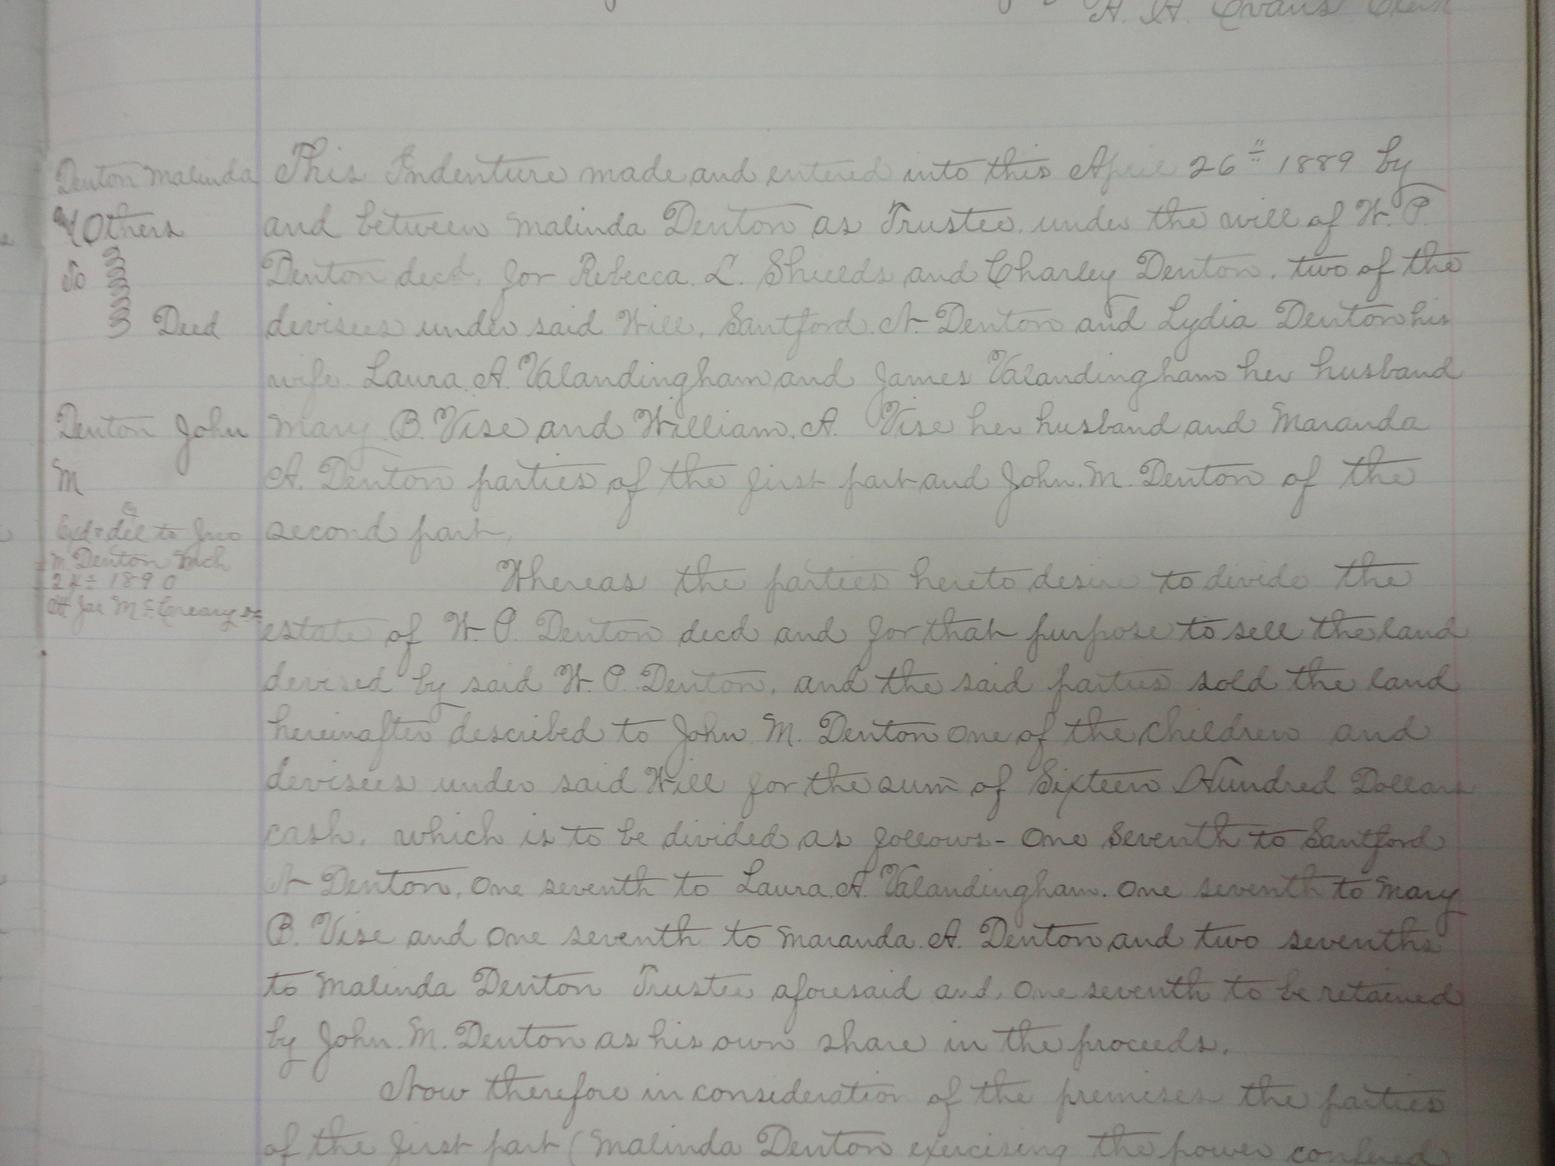 A. A. Evans Clerk
Denton Malinda
& Others
To
Deed
Denton John
M
Exd & del to Jno
M Denton Mch
24 = 1890
Att Joe McCreary DC
This Indenture made and entered into this April 26" 1889 by
and between Malinda Denton as Trustee under the will of W. P.
Denton decd. for Rebecca. L. Shields and Charley Denton. two of the
devisees under said Will, Santford. A Denton and Lydia Denton his
wife. Laura. A. Valandingham and James Valandingham her husband
Mary B. Vise and William. A. Vise her husband and Maranda
A. Denton parties of the first part and John. M. Denton of the
second part,
Whereas the parties hereto desire to divide the
estate of W. P. Denton decd and for that purpose to sell the land
devised by said W. P. Denton, and the said parties sold the land
hereinafter described to John M. Denton one of the children and
devisees under said Will for the sum of Sixteen Hundred Dollars
cash. which is to be divided as follows - One Seventh to Santford
A Denton, One seventh to Laura. A. Valandingham. One seventh to Mary
B. Vise and One seventh to Maranda. A. Denton and two sevenths
to Malinda Denton Trustee aforesaid and, One seventh to be retained
by John. M. Denton as his own share in the proceeds.
Now therefore in consideration of the premises the parties
of the first part (Malinda Denton exercising the power confered